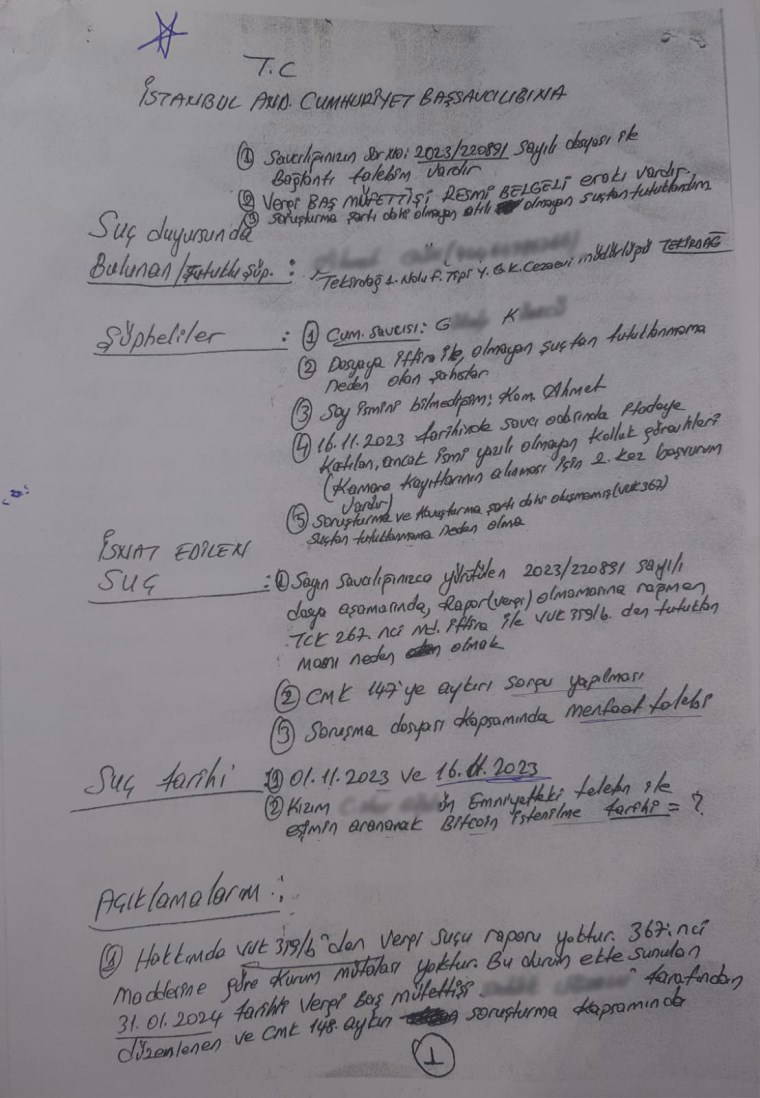 T.C
İSTANBUL AND. CUMHURİYET BAŞSAVCILIĞINA
① Savcılığınızın Sor.no: 2023/220891 sayılı dosyası ile
Bağlantı talebim vardır
② Vergi BAŞ MÜFETTİŞİ RESMİ BELGELİ vardır.
③ Soruşturma şartı dahi olmayan olmayan suçtan tutuklandım
Suç duyusunda
Bulunan/Tutuklu Şüp. :
Tekirdağ 1. Nolu F. Tipi Y. G. K. Cezaevi müdürlüğü TEKİRDAĞ
Şüpheliler : ① Cum. savcısı: G K
② Dosyaya iftira ile, olmayan suçtan tutuklanmama
neden olan şahıslar
③ Soy ismini bilmediğim: Kom. Ahmet
④ 16.11.2023 tarihinde savcı odasında ifadeye
Katılan, ancak ismi yazılı olmayan Kolluk görevlileri
(Kamera Kayıtlarının alınması için 2. kez başvurum
vardır)
⑤ Soruşturma ve Kovuşturma şartı dahi oluşmamış (VUK 367)
Suçtan tutuklanmama neden olma
İSNAT EDİLEN
SUÇ : ① Sayın Savcılığınızca yürütülen 2023/220891 sayılı
dosya aşamasında, Rapor(vergi) olmamasına rağmen
TCK 267. nci md. iftira ile VUK 359/b. den tutuklan
mamı neden olmak
② CMK 147'ye aykırı sorgu yapılması
③ Soruşma dosyası Kapsamında menfaat talebi
Suç tarihi ① 01.11.2023 ve 16.11.2023
② Kızım ın Emniyetteki telefon ile
eşimin aranarak Bitcoin istenilme tarihi = ?
Açıklamalarım :
① Hakkımda VUK 359/b "den Vergi Suçu raporu yoktur. 367. nci
maddesine göre Kurum mütalası yoktur. Bu durum ekte sunulan
31.01.2024 tarihli Vergi Baş müfettişi tarafından
düzenlenen ve CMK 148. aykırı soruşturma Kapsamında
1